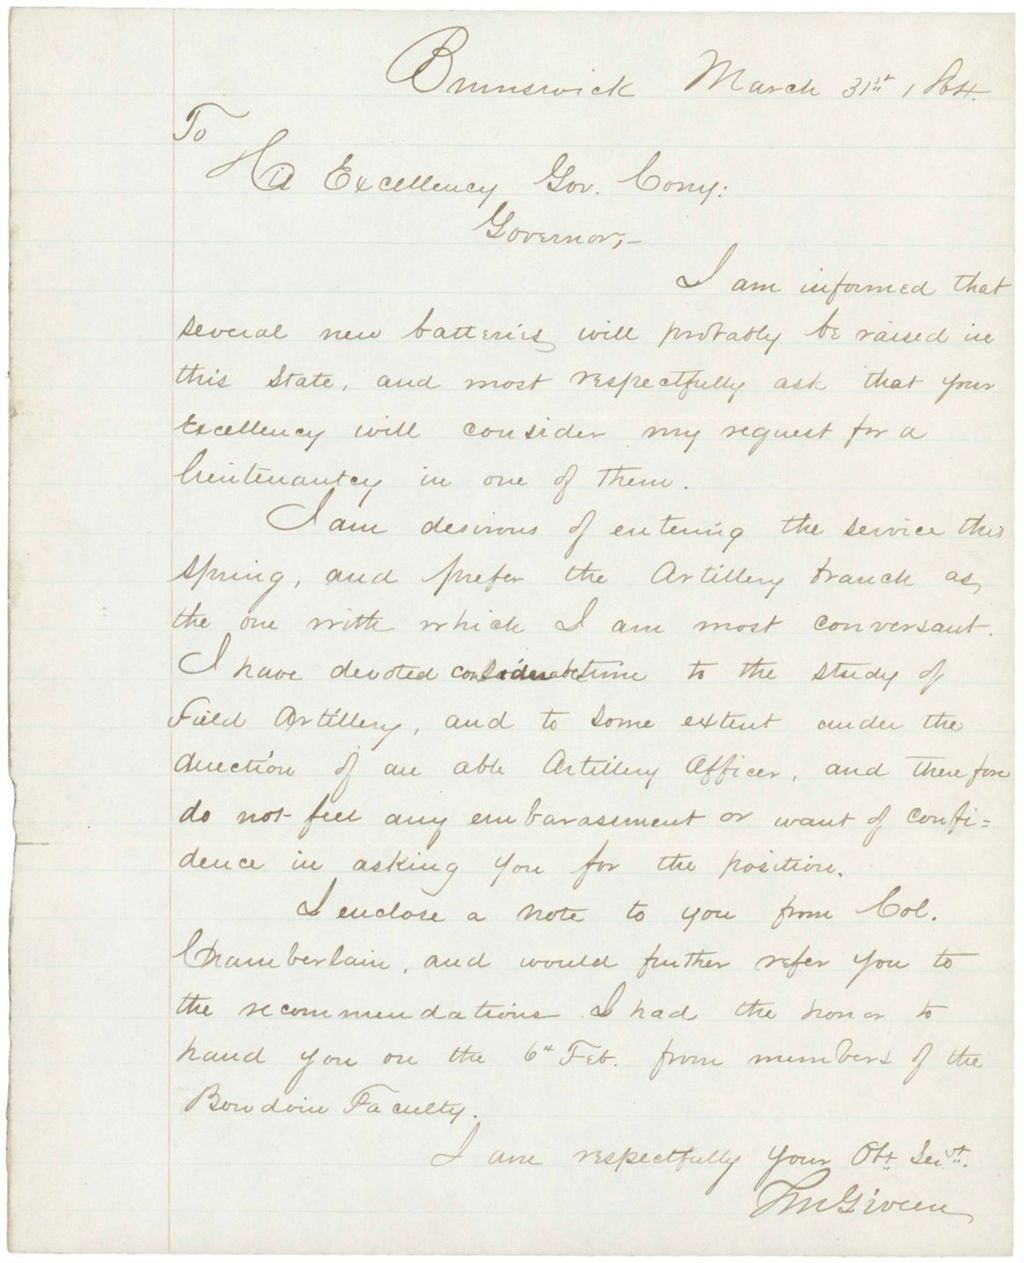 Brunswick March 31st 1864.
To
His Excellency Gov. Cony:
Governor,—
I am informed that
several new batteries will probably be raised in
this State, and most respectfully ask that your
Excellency will consider my request for a
lieutenantcy in one of them.
I am desirous of entering the service this
spring, and prefer the Artillery branch as,
the one with which I am most conversant.
I have devoted considerable time to the study of
Field Artillery, and to some extent under the
direction of an able Artillery Officer, and therefore
do not feel any embarasement or want of confi=
dence in asking you for the position.
I enclose a note to you from Col.
Chamberlain, and would further refer you to
the recommendations I had the honor to
hand you on the 6th Feb. from members of the
Bowdoin Faculty.
I am respectfully your Obt. Servt.
Giveen